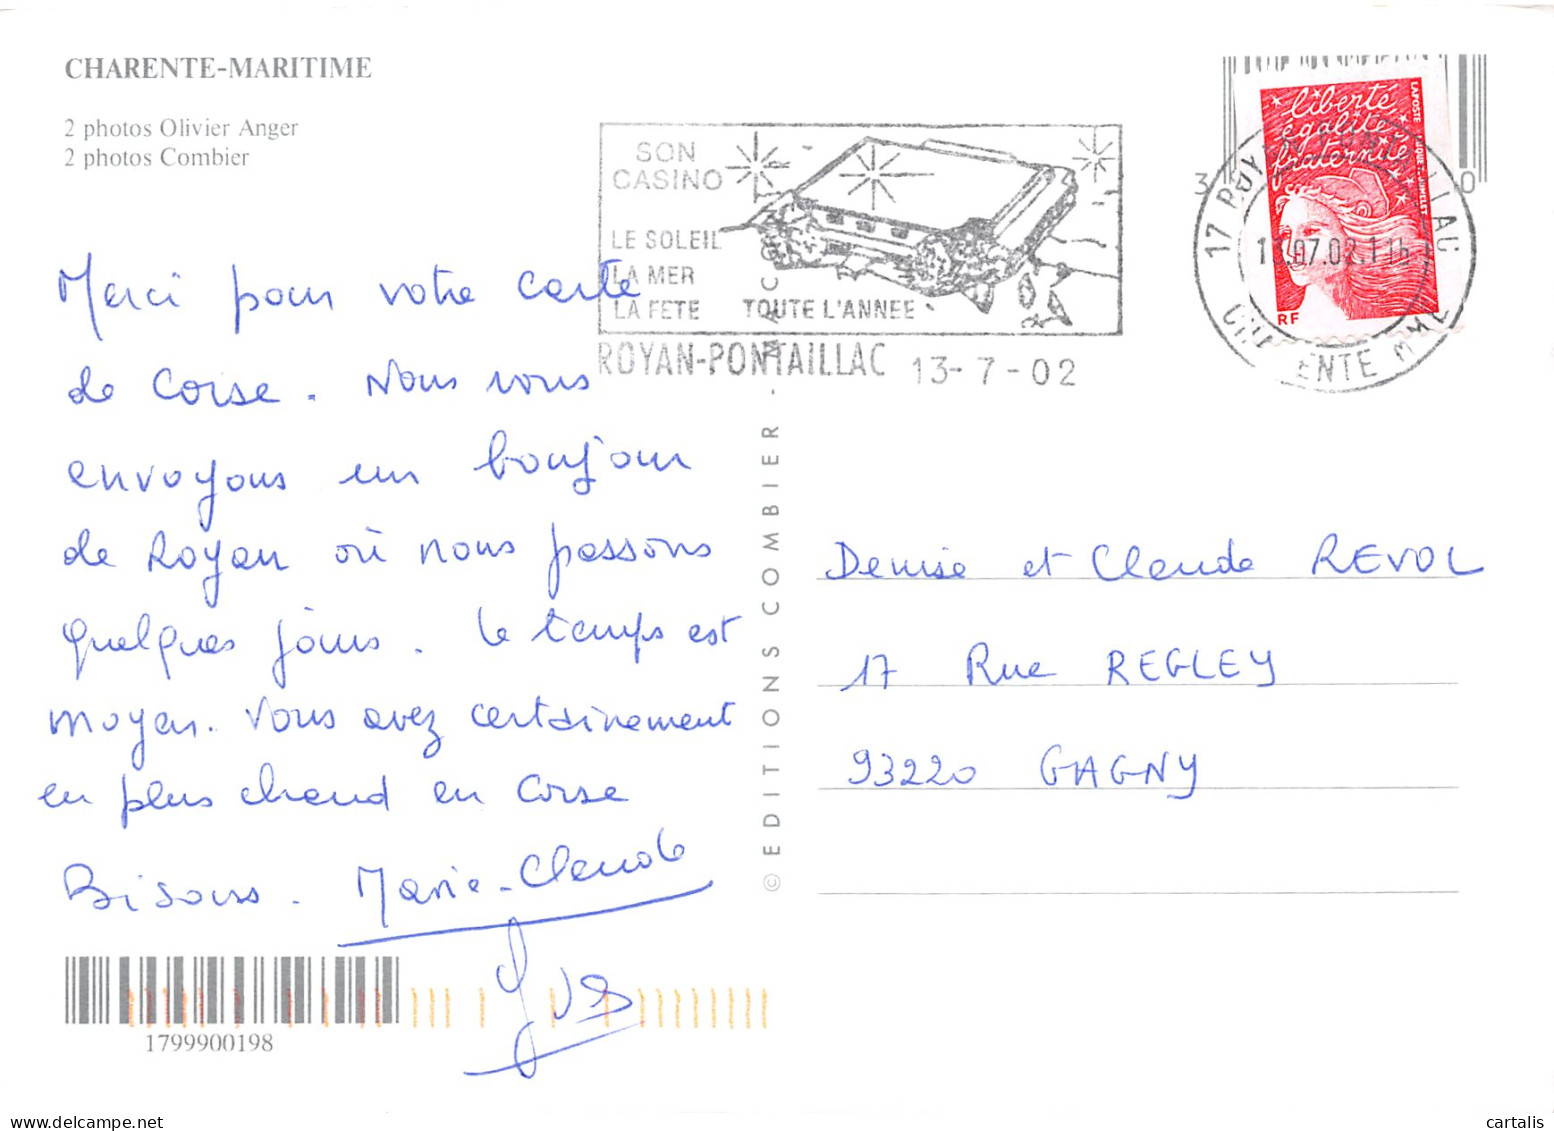 CHARENTE-MARITIME
2 photos Olivier Anger
2 photos Combier
Merci pour votre carte
de Corse. Nous vous
envoyons un bonjour
de Royan où nous passons
quelques jours. Le temps est
moyen. Vous avez certainement
eu plus chaud en Corse
Bisous. Marie-Claude
Yves
1799900198
© EDITIONS COMBIER - MACON
SON
CASINO
LE SOLEIL
LA MER
LA FETE TOUTE L'ANNEE
ROYAN-PONTAILLAC 13-7-02
liberté
égalité
fraternité
LA POSTE
RF
17 ROYAN PONTAILLAC
CHARENTE MME
Denise et Claude REVOL
17 Rue REGLEY
93220 GAGNY
https://www.delcampe.net
cartalis